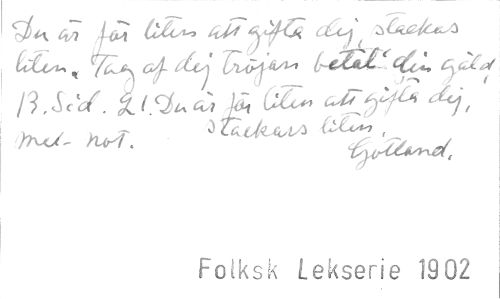 Du är för liten att gifta dej, stackars
liten. Tag af dej tröjan betal' din gäld,
B. Sid. 21. Du är för liten att gifta dig,
stackars liten,
med not.
Gotland.
Folksk Lekserie 1902